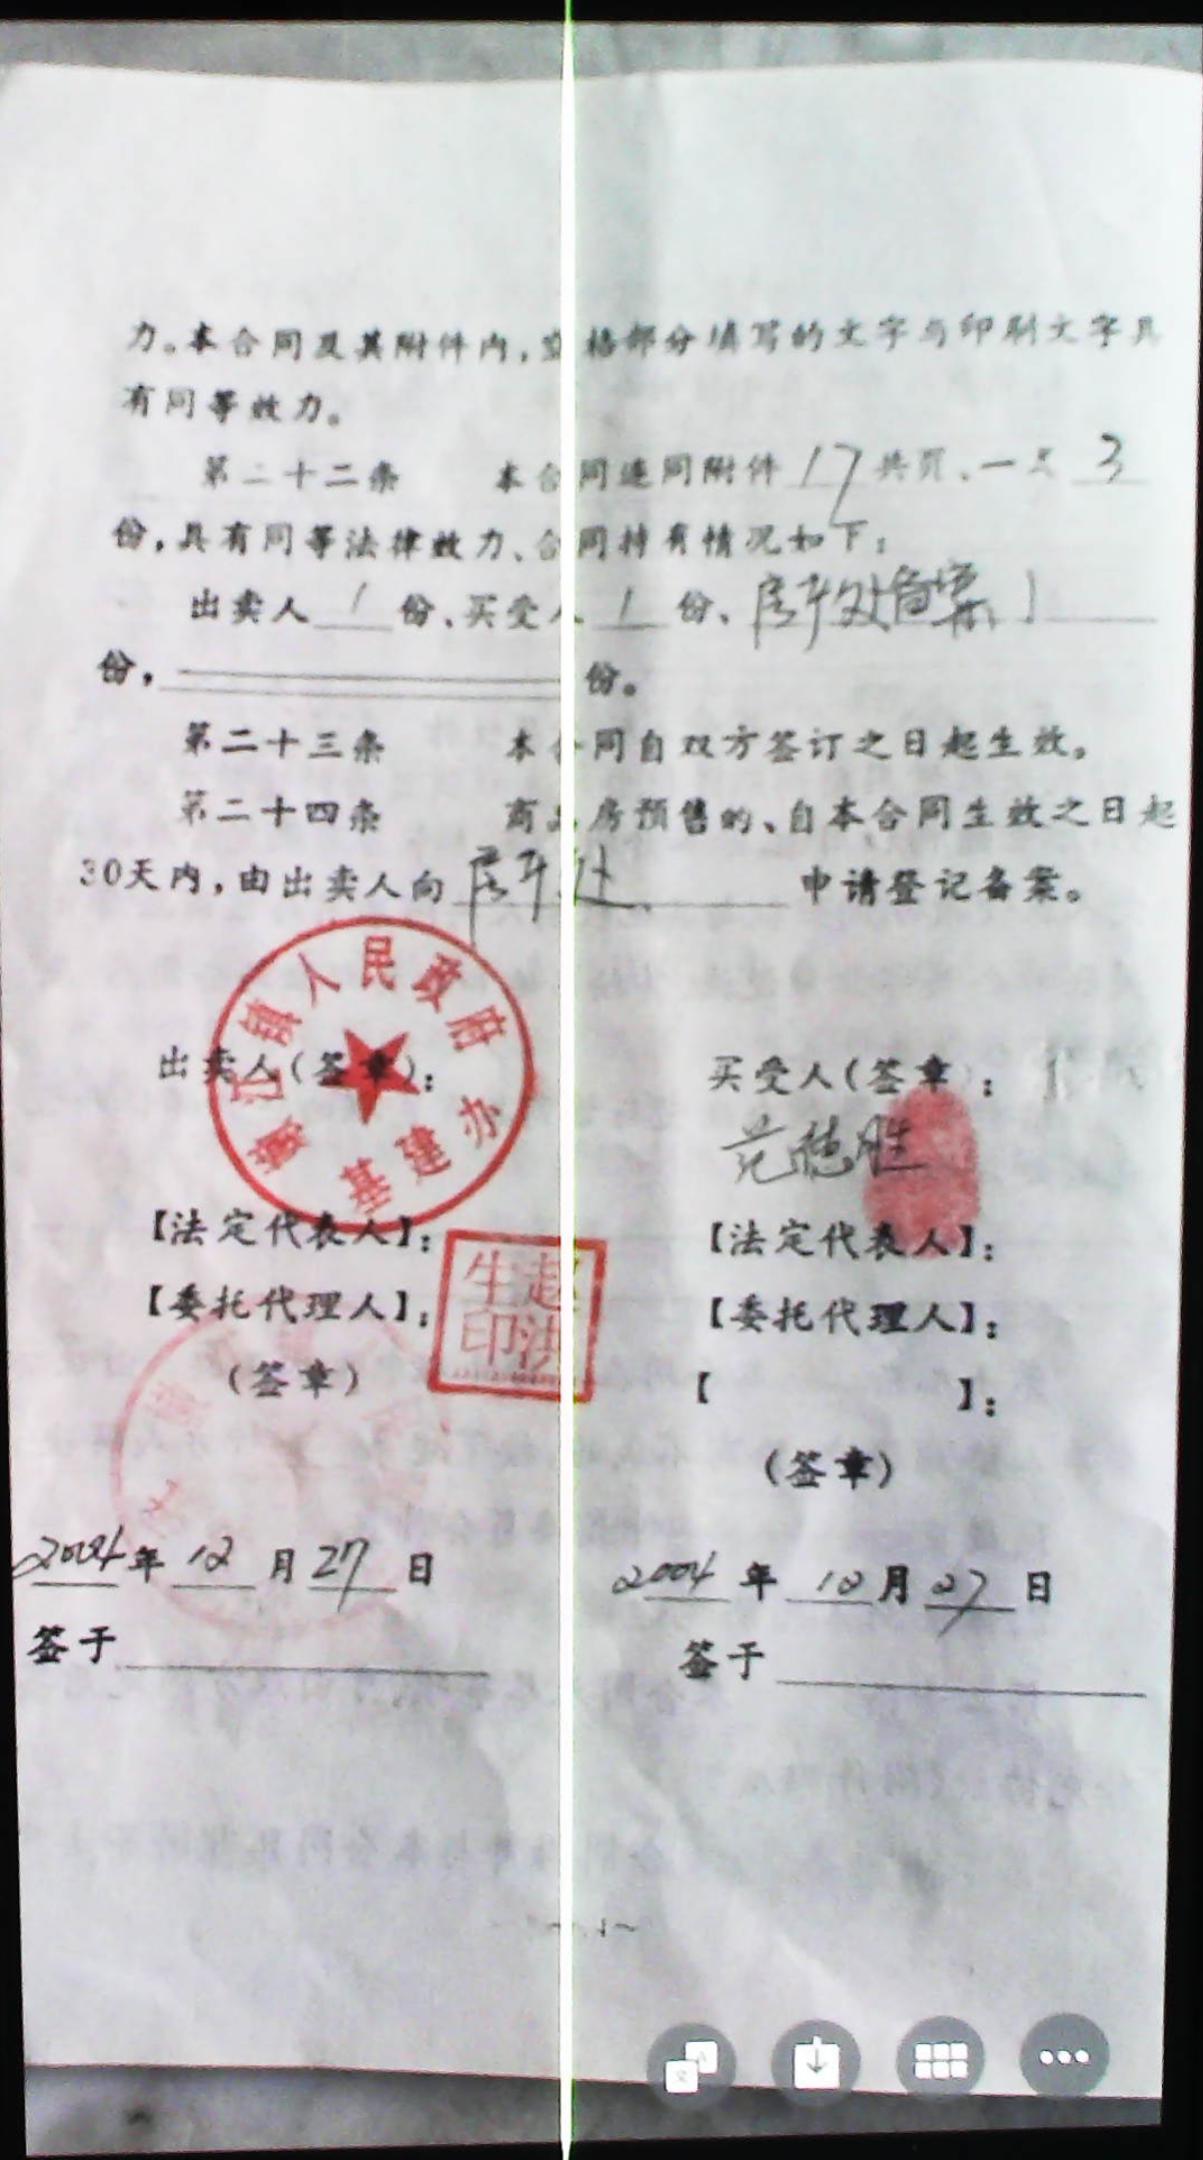 力。本合同及其附件内，空格部分填写的文字与印刷文字具
有同等效力。
第二十二条 本合同连同附件 17 共页、一式 3
份，具有同等法律效力、合同持有情况如下：
出卖人 1 份、买受人 1 份、房产处备案 1
份， 份。
第二十三条 本合同自双方签订之日起生效。
第二十四条 商品房预售的、自本合同生效之日起
30天内，由出卖人向 房产处 申请登记备案。
镇人民政府
基建办
出卖人（签章）：
买受人（签章）：
范德胜
【法定代表人】：
【法定代表人】：
赵洪生印
【委托代理人】：
【委托代理人】：
（签章）
【 】：
（签章）
2004 年 12 月 27 日
2004 年 12 月 27 日
签于
签于